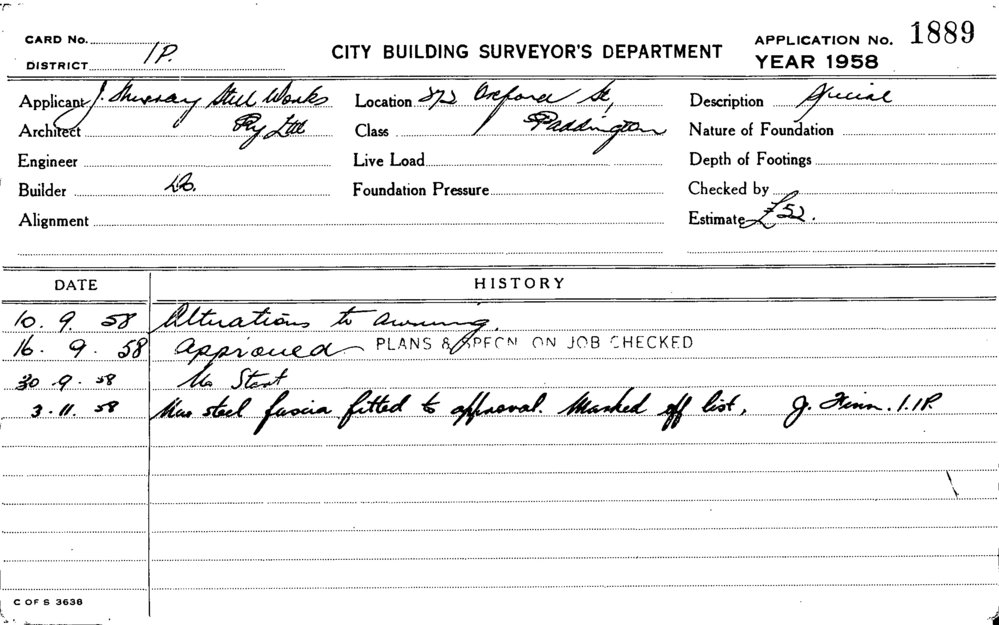 CARD No.
DISTRICT 1P.
CITY BUILDING SURVEYOR'S DEPARTMENT
APPLICATION No. 1889
YEAR 1958
Applicant J. Murray Steel Works Location Oxford St, Description Special
Architect Pty Ltd Class Paddington Nature of Foundation
Engineer Live Load Depth of Footings
Builder Do. Foundation Pressure Checked by
Alignment Estimate £52.
DATE HISTORY
10. 9. 58 Alterations to awning.
16. 9. 58 Approved PLANS & SPECN ON JOB CHECKED
30 .9. 58 No Start
3. 11. 58 New steel fascia fitted to approval. Marked off list, J. 1.1P.
C OF S 3638